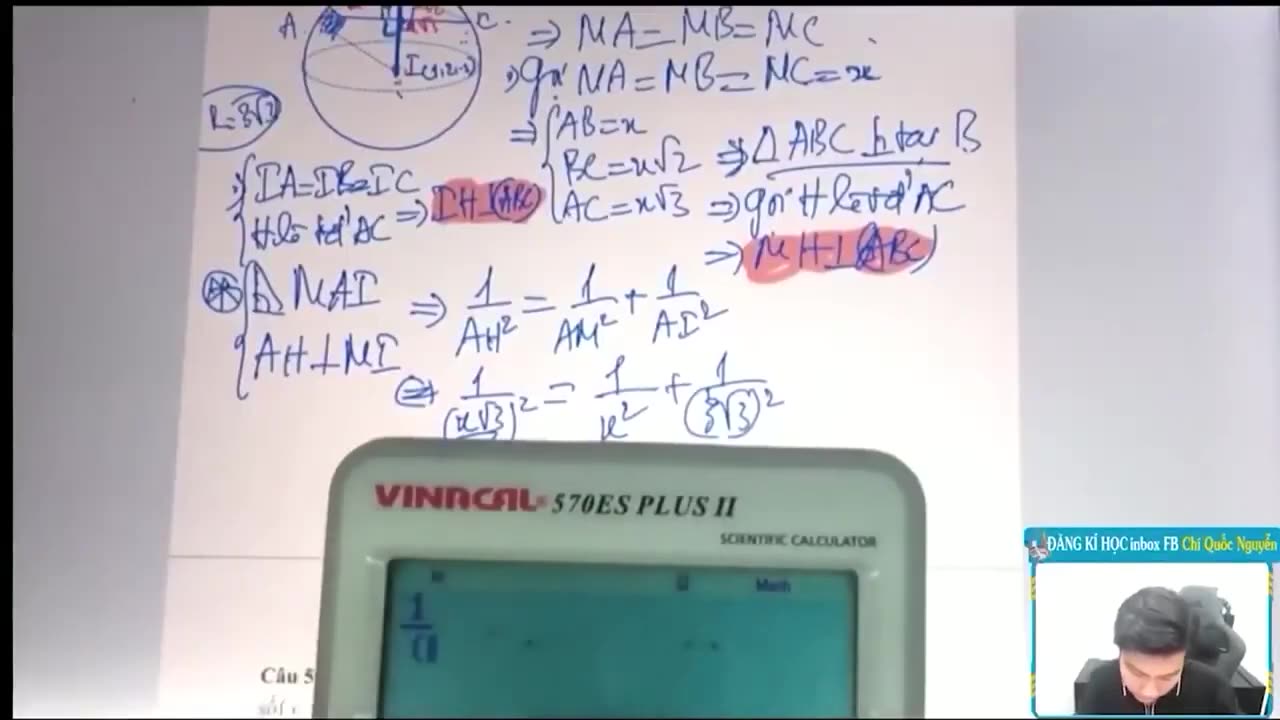 A
C
I(1,2,-3)
R=3√3
⇒ MA=MB=MC
gọi MA=MB=MC=x
⇒ { AB=x
BC=x√2 ⇒ Δ ABC ⊥ tại B
AC=x√3 ⇒ gọi H là tđ AC
⇒ MH⊥(ABC)
{ IA=IB=IC
H là tđ AC ⇒ IH⊥(ABC)
{ Δ MAI ⇒ 1/AH² = 1/AM² + 1/AI²
AH⊥MI
⇔ 1/(x√3)² = 1/x² + 1/(3√3)²
VINACAL 570ES PLUS II
SCIENTIFIC CALCULATOR
Math
1
ĐĂNG KÍ HỌC inbox FB Chí Quốc Nguyễn
Câu 5